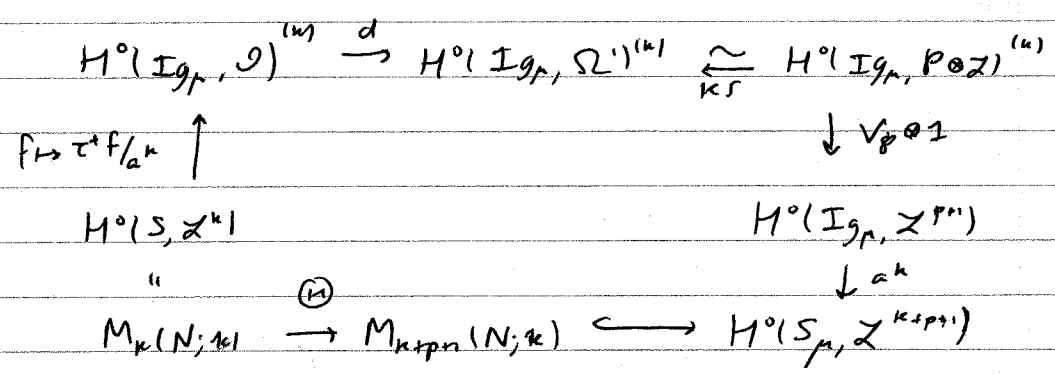 H⁰(Ig_μ, O)^(k) →d H⁰(Ig_μ, Ω¹)^(k) ≃← KS H⁰(Ig_μ, P⊗L)^(k)
f ↦ τ*f/a^k ↑ ↓ V_P⊗1
H⁰(S, L^k) H⁰(Ig_μ, L^{p+1})
" Θ ↓ a^k
M_k(N;κ) → M_{k+p+1}(N;κ) ↪ H⁰(S_μ, L^{k+p+1})